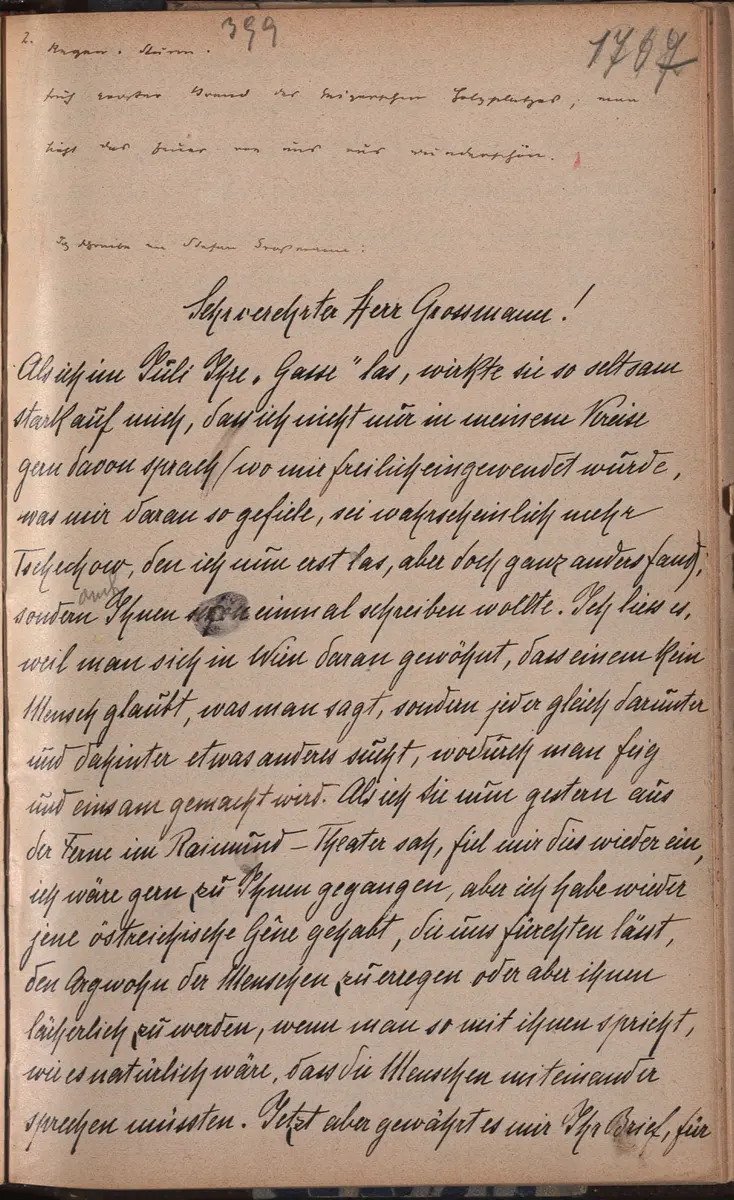 399
1767
2.
Regen. Sturm.
früh grosser Brand des Holzplatzes; man
sieht das Feuer von uns aus wunderschön.
Ich schreibe an Stefan Grossmann:
Sehrverehrter Herr Grossmann!
Als ich im Juli Ihre „Gasse" las, wirkte sie so seltsam
stark auf mich, dass ich nicht nur in meinem Kreise
gern davon sprach (wo mir freilich eingewendet wurde,
was mir daran so gefiele, sei wahrscheinlich mehr
Tschechow, den ich nun erst las, aber doch ganz anders fand),
sondern auch Ihnen einmal schreiben wollte. Ich liess es,
weil man sich in Wien daran gewöhnt, dass einem kein
Mensch glaubt, was man sagt, sondern jeder gleich darunter
und dahinter etwas anderes sucht, wodurch man feig
und einsam gemacht wird. Als ich Sie nun gestern aus
der Ferne im Raimund-Theater sah, fiel mir dies wieder ein,
ich wäre gern zu Ihnen gegangen, aber ich habe wieder
jene östreichische Gêne gehabt, die uns fürchten lässt,
den Argwohn der Menschen zu erregen oder aber ihnen
lächerlich zu werden, wenn man so mit ihnen spricht,
wie es natürlich wäre, dass die Menschen miteinander
sprechen müssten. Jetzt aber gewährt es mir Ihr Brief, für